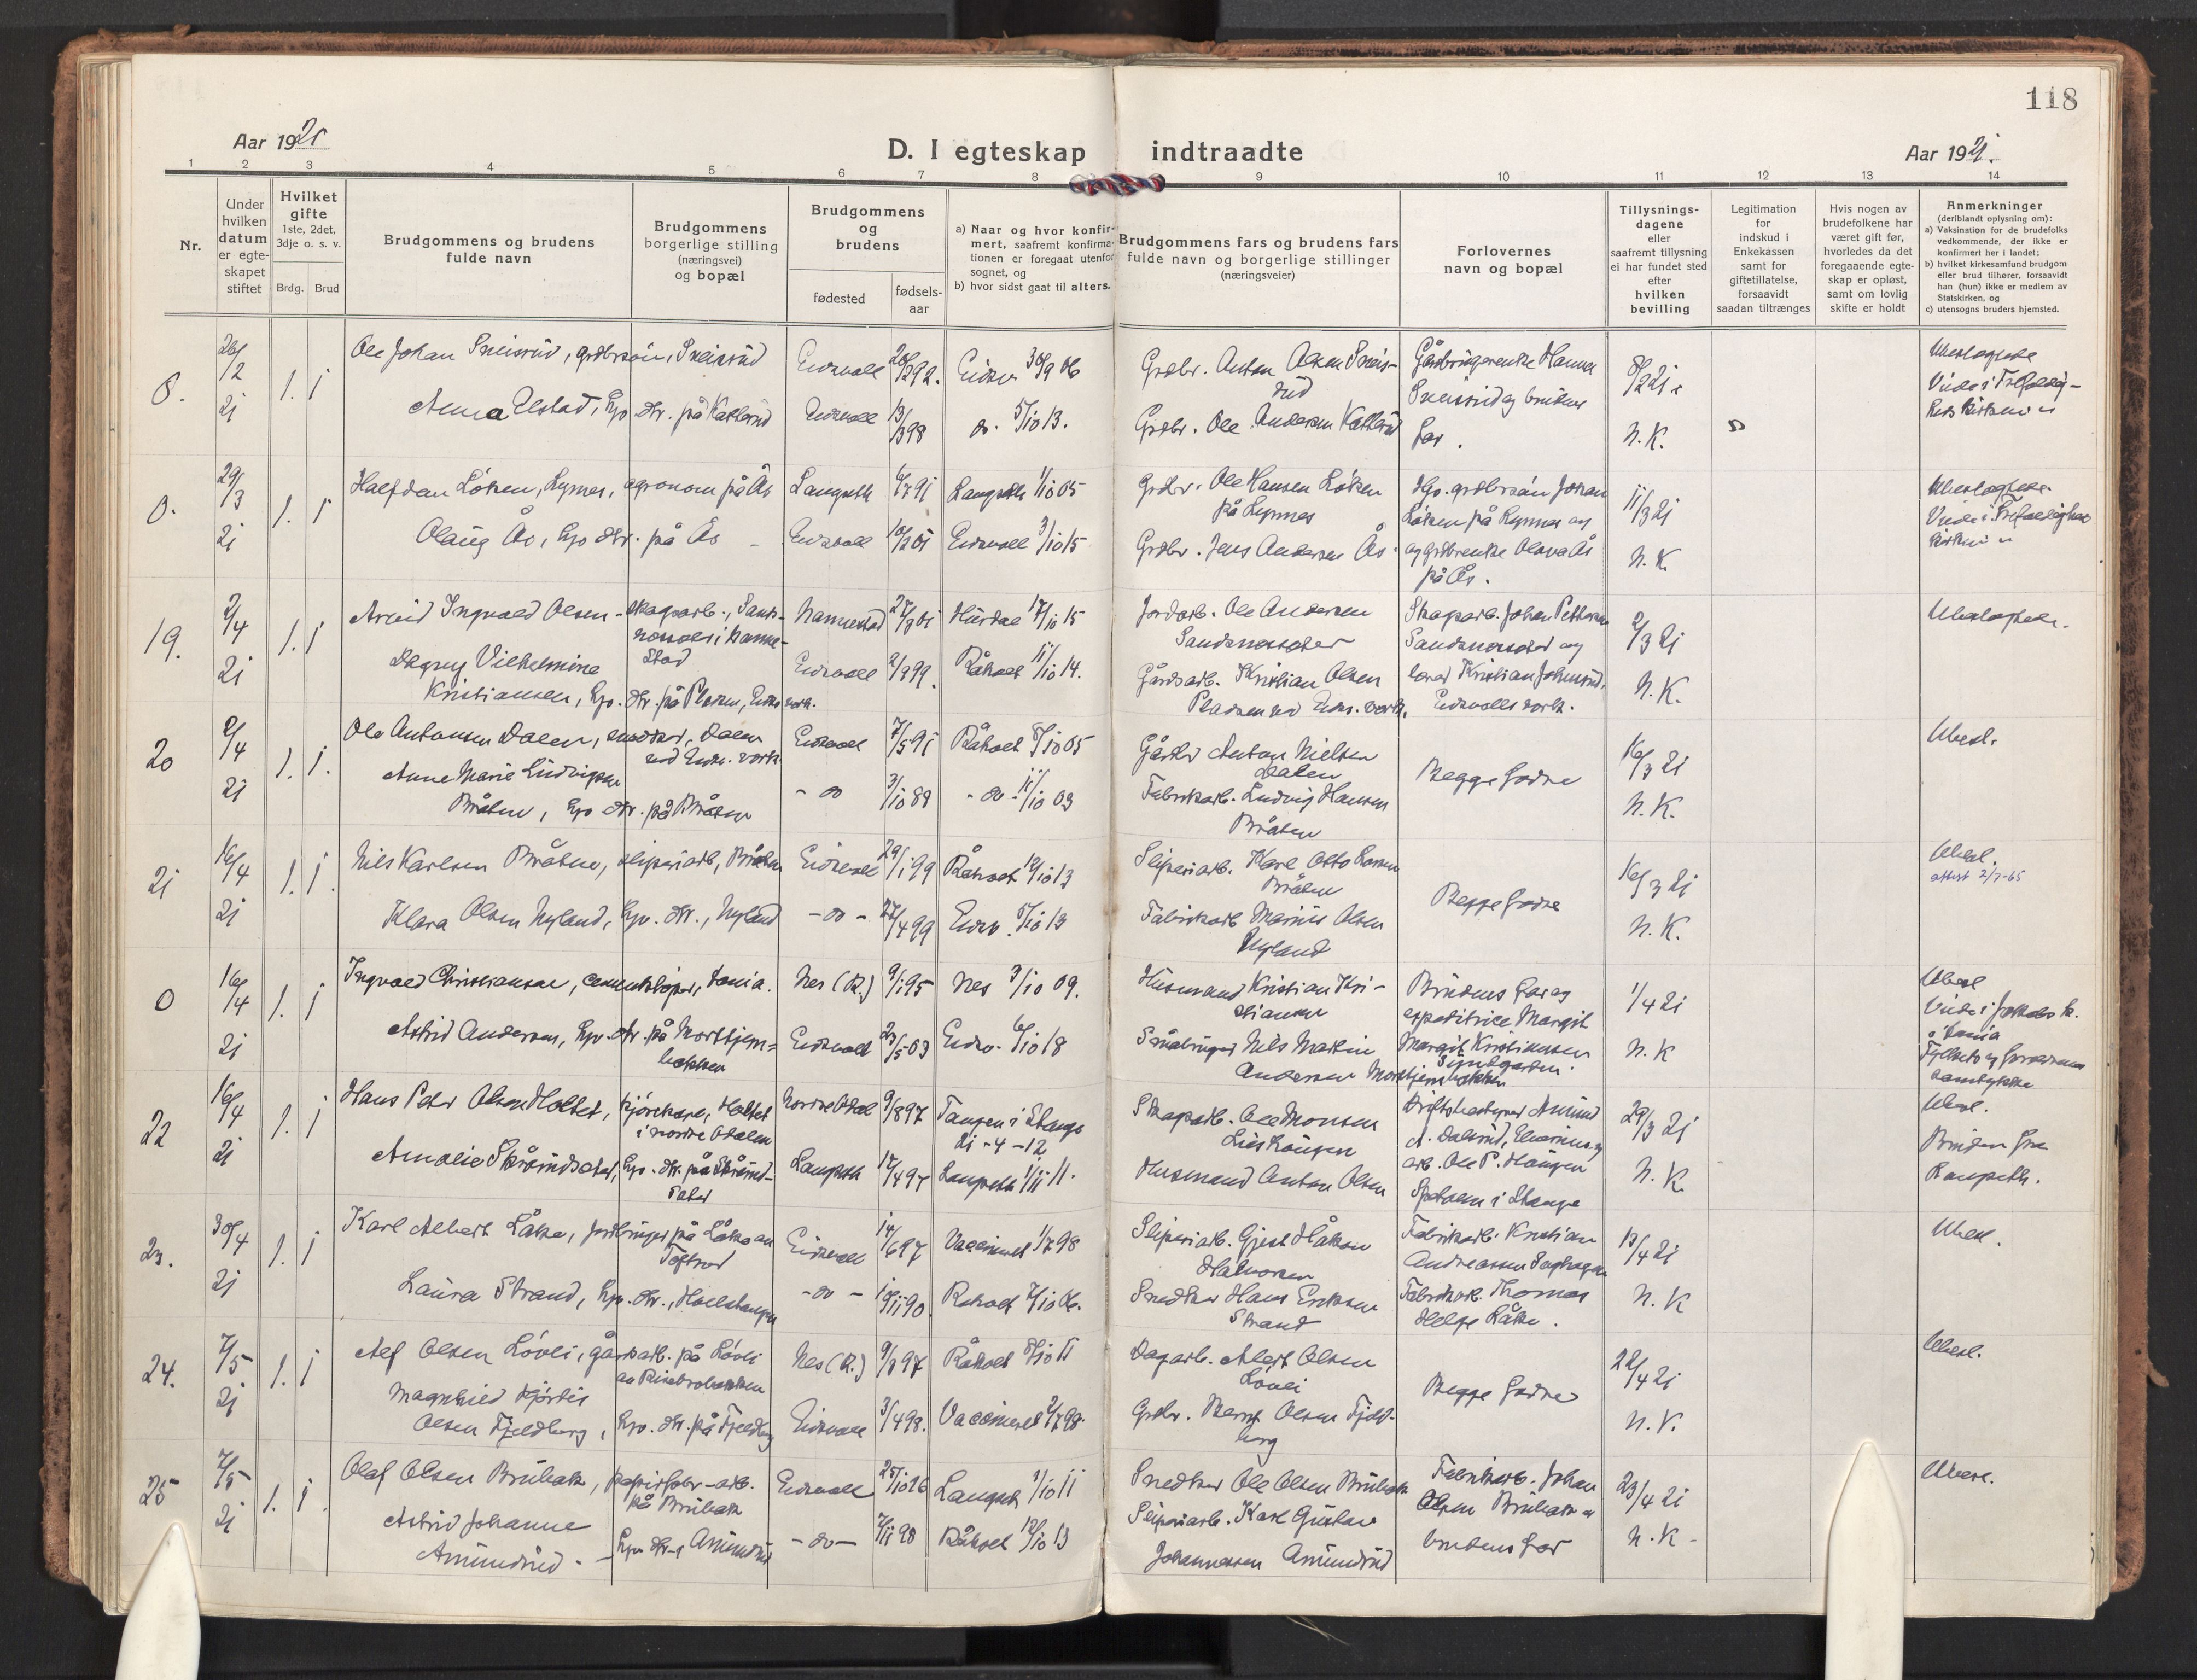 118
Aar 1921
D. I egteskap indtraadte
Aar 1921.
1 2 3 4 5 6 7 8 9 10 11 12 13 14
Nr.
Under hvilken datum er egteskapet stiftet
Hvilket gifte 1ste, 2det, 3dje o. s. v.
Brdg. Brud
Brudgommens og brudens fulde navn
Brudgommens borgerlige stilling (næringsvei) og bopæl
Brudgommens og brudens
fødested
fødsels-aar
a) Naar og hvor konfirmert, saafremt konfirmationen er foregaat utenfor sognet, og
b) hvor sidst gaat til alters.
Brudgommens fars og brudens fars fulde navn og borgerlige stillinger (næringsveier)
Forlovernes navn og bopæl
Tillysnings-dagene eller saafremt tillysning ei har fundet sted efter hvilken bevilling
Legitimation for indskud i Enkekassen samt for giftetillatelse, forsaavidt saadan tiltrænges
Hvis nogen av brudefolkene har været gift før, hvorledes da det foregaaende egteskap er opløst, samt om lovlig skifte er holdt
Anmerkninger
(deriblandt oplysning om):
a) Vaksination for de brudefolks vedkommende, der ikke er konfirmert her i landet;
b) hvilket kirkesamfund brudgom eller brud tilhører, forsaavidt han (hun) ikke er medlem av Statskirken, og
c) utensogns bruders hjemsted.
0. 26/2 21 1. 1
Ole Johan Sneisrud, grdbrsøn, Sneisrud Eidsvoll 92. Eidsv. 30/9 06
Anna Elstad, hjv. dtr. på Katterud Eidsvoll 13/3 98 do. 5/10 13.
Grdbr. Anton Olsen Sneisrud
Grdbr. Ole Andersen Katterud
Gårdbrugerenke Hanna
Sneisrud og brudens
far.
8/2 21
N.K.
Viede i Trefoldig-
hets kirken
0. 29/3 21 1. 1
Halfdan Løken, Rymnes, agronom på Ås Langseth 6/7 91 Langseth 1/10 05
Olaug Ås, hjv. dtr. på Ås Eidsvoll 01 Eidsvoll 3/10 15
Grdbr. Ole Hansen Løken
på Rymnes
Grdbr. Jens Andersen Ås.
grdbrsøn Johan
Løken på Rymnes og
og grdbrenke Olava Ås
på Ås.
11/3 21
N.K.
Viede i Trefoldighets
kirken
19. 2/4 21 1. 1
Arvid Ingvald Olsen skogsarb., Nannestad 01 Hurdal 17/10 15
Dagny Vilhelmine Eidsvoll 99. Råholt 11/10 14.
Kristiansen, hjv. dtr. på Pladsen, Eidsv. verk.
Jordarb. Ole Andersen
Gårdsarb. Kristian Olsen
Pladsen ved Eidsv. verk.
Skogsarb. Johan Pettersen
Kristian Johnsrud,
Eidsvolls verk.
2/3 21
N.K.
20 2/4 21 1. 1.
Ole Antonsen Dalen, snekker, Dalen Eidsvoll 7/5 91 Råholt 8/10 05
ved Eidsv. verk
Anne Marie Ludvigsen - do 3/10 88 - do - 11/10 03
Bråten, hjv. dtr. på Bråten
Anton Nielsen
Dalen
Fabrikarb. Ludvig Hansen
Bråten
Begge fædre
16/3 21
N.K.
Ubesl.
21 16/4 21 1. 1.
Nils Karlsen Bråten, sliperiarb, Bråten Eidsvoll 29/1 99 Råholt 12/10 13
Klara Olsen Nyland, hjv. dtr., Nyland - do - 27/4 99 Eidsv. 5/10 13
Sliperiarb. Karl Otto Larsen
Bråten
Fabrikarb Marius Olsen
Nyland
Begge fædre
16/3 21
N.K.
Ubesl.
attest 2/7-65
0 16/4 21 1. 1
Ingvald Christiansen, Nes (R.) 9/1 95 Nes 3/10 09.
Astrid Andersen, hjv. dtr. på Morttjern-
bakken Eidsvoll 23/5 03 Eidsv. 6/10 18
Husmand Kristian Kri-
stiansen
Småbruger Nils Martin
Andersen Morttjernbakken
Brudens far og
expeditrice Margit
Margit Kristiansen
1/4 21
N.K
Ubesl
Viede i Jakobs k.
samtykke
22 16/4 21 1. 1
Hans Peter Olsen Holtet, kjørekar, Holtet Nordre Odal 9/8 97 Tangen i Stange
i nordre Odalen 21-4-12
Amalie Skårudsæter, hjv. dtr. på Langseth 17/4 97 Langseth 1/11 11.
Skogsarb. Ole Monsen
Husmand Anton Olsen
Driftsbestyrer Amund
A. Dalsrud,
arb. Ole P. Haugen
i Stange
29/3 21
N.K.
Ubesl.
Bruden fra
Langseth.
23. 30/4 21 1. 1
Karl Albert Låke, jordbruger på Låke Eidsvoll 14/6 97 Vaccineret 1/7 98
Laura Strand, hjv. dtr., - do - 90. Råholt 7/10 06.
Sliperiarb. Gjest Håkon
Halvorsen
Snedker Hans Eriksen
Strand
Fabrikarb. Kristian
Andreassen
Fabrikarb. Thomas
Helge Låke.
13/4 21
N.K
Ubesl.
24. 7/5 21 1. 1
Alf Olsen Løvli, gårdsarb. på Løvli Nes (R.) 97 Råholt 8/10 11
Magnhild Hjørdis
Olsen Fjeldberg, hjv. dtr. på Fjeldberg Eidsvoll 3/4 98. Vaccineret 2/7 98.
Dagarb. Albert Olsen
Løvli
Grdbr. Bernt Olsen Fjeld-
berg
Begge fædre
22/4 21
N.K.
Ubesl.
25 7/5 21 1. 1.
Olaf Olsen Brubak, papirfabr-arb.
på Brubak Eidsvoll 25/10 Langset 1/10 11
Astrid Johanne
Amundrud. - hjv. dtr., Amundrud - do - 7/11 98 Råholt 12/10 13
Snedker Ole Olsen Brubak
Sliperiarb. Karl Gustav
Johannessen Amundrud
Fabrikarb. Johan
Olsen Brubak
brudens far
23/4 21
N.K.
Ubesl.